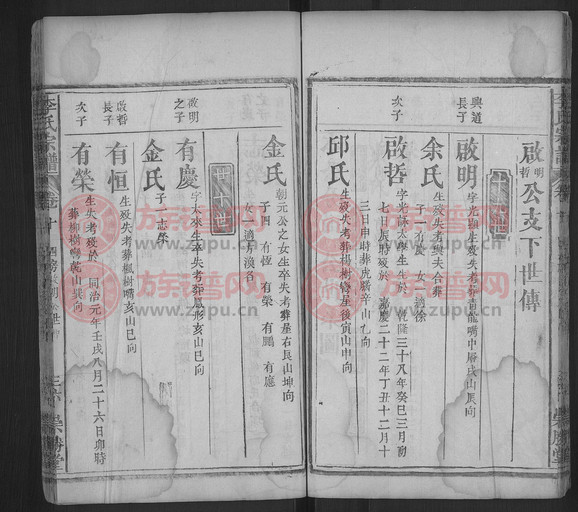 啟明
哲
公支下世傳
興道
長子
啟明
字光顯生歿失考葬青龍嘴中層戌山辰向
余氏
生歿失考與夫合葬
子一 有慶 女一適徐
次子
啟哲
字光藤太學生生於 乾隆三十八年癸巳三月初
七日辰時歿於 嘉慶二十二年丁丑十二月十
三日申時葬虎腦辛山乙向
邱氏
生歿失考葬楊樹灣星後寅山申向
金氏
朝元公之女生卒失考葬星右艮山坤向
子四 有恆 有榮 有鵬 有應
女一適片漢音
廿十世
啟明
之子
有慶
字太來生卒失考葬鳳形亥山巳向
金氏
子一志榮
啟哲
長子
有恒
生歿失考葬楓樹嘴亥山巳向
次子
有榮
生失考歿於 同治元年壬戌八月二十六日卯時
葬柳樹灣乾山巽向
李氏宗譜
卷十
三六
崇勝堂
族譜网
www.zupu.cn